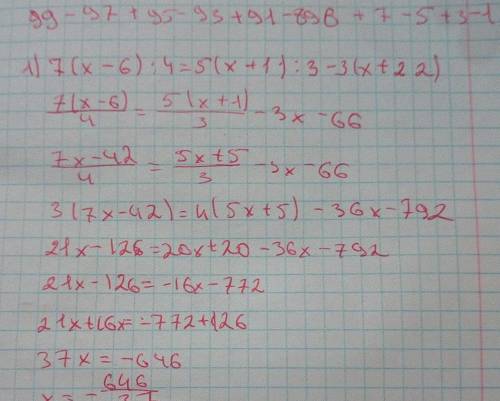 99-97+95-93+91-89 + 7-5+3-1
1) 7(x-6):4=5(x+1):3-3(x+22)
7(x-6)/4 = 5(x+1)/3 - 3x - 66
7x-42/4 = 5x+5/3 - 3x - 66
3(7x-42)=4(5x+5)-36x-792
21x-126=20x+20-36x-792
21x-126=-16x-772
21x+16x=-772+126
37x=-646
x=-646/37